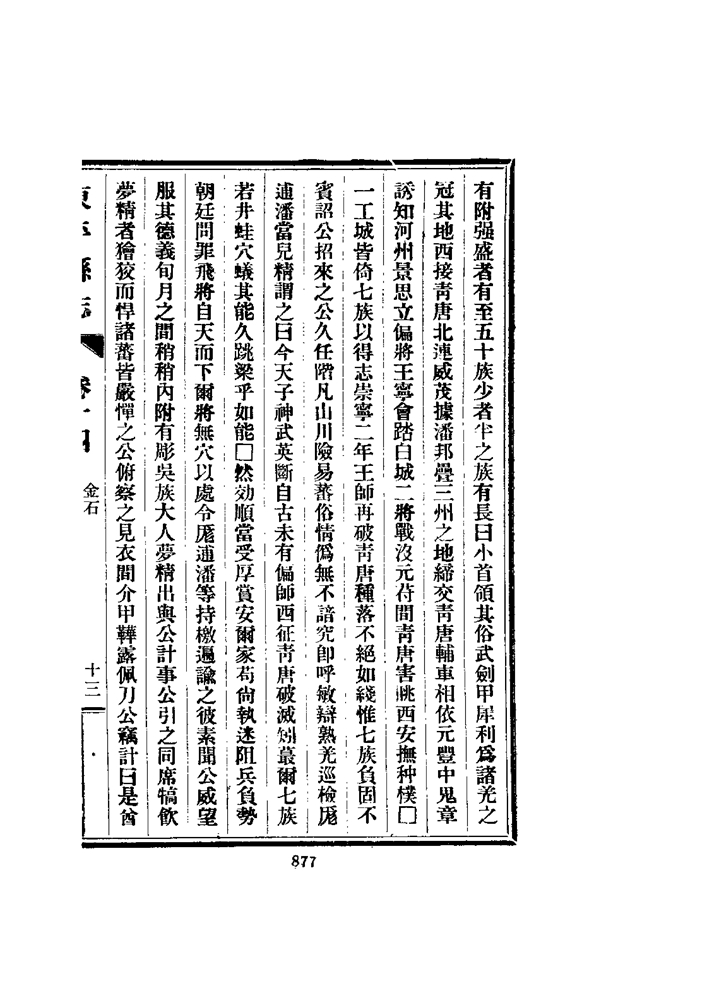 有附强盛者有至五十族少者半之族有長曰小首領其俗武劍甲犀利爲諸羌之
冠其地西接靑唐北連威茂據潘邦疊三州之地締交靑唐輔車相依元豐中鬼章
誘知河州景思立偏將王寧會踏白城二將戰沒元苻間靑唐害眺西安撫种樸□
一工城皆倚七族以得志崇寧二年王師再破靑唐種落不絕如綫惟七族負固不
賓詔公招來之公久任階凡山川險易蕃俗情僞無不諳究卽呼敏辯熟羌巡檢厖
逋潘當兒精謂之曰今天子神武英斷自古未有偏師西征靑唐破滅矧蕞爾七族
若井蛙穴蟻其能久跳梁乎如能□然効順當受厚賞安爾家苟尙執迷阻兵負勢
朝廷問罪飛將自天而下爾將無穴以處令厖逋潘等持檄遍諭之彼素聞公威望
服其德義旬月之間稍稍內附有彫吳族大人夢精出與公計事公引之同席犒飮
夢精者獪狡而悍諸蕃皆嚴憚之公俯察之見衣間介甲鞾露佩刀公竊計曰是酋
東平縣志
卷十四
金石
十三
877